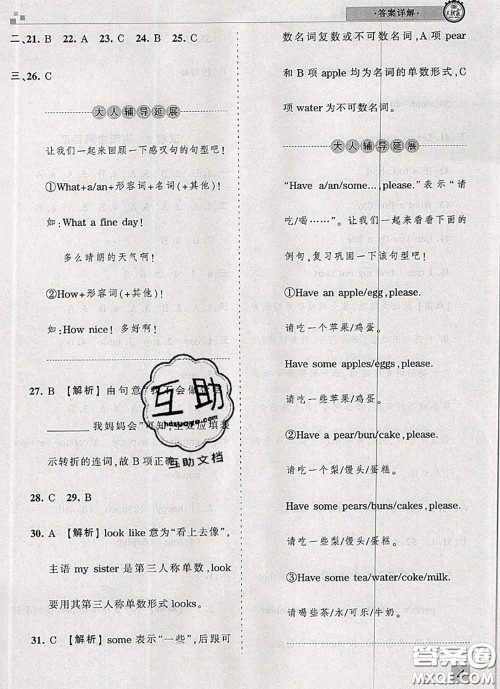 ·答案详解·
二、21. B 22. A 23. C 24. B 25. C
三、26. C
大人辅导延展
让我们一起来回顾一下感叹句的句型吧!
①What+a/an+形容词+名词(+其他)!
如:What a fine day!
多么晴朗的天气啊!
②How+形容词(+其他)!
如:How nice! 多好啊!
27. B 【解析】由句意“
我妈妈会”可知,
示转折的连词,故B项正确。
28. C 29. B
30. A 【解析】look like意为“看上去像”,
主语 my sister 是第三人称单数,look
要用其第三人称单数形式looks。
31. C 【解析】some 表示“一些”,后跟可
数名词复数或不可数名词,A项 pear
和 B 项 apple 均为名词的单数形式,C
项 water 为不可数名词。
大人辅导延展
“Have a/an/some…,please.”表示“请
吃/喝……”,让我们一起来看看下面的
例句,复习巩固一下该句型吧!
①Have an apple/egg,please.
请吃一个苹果/鸡蛋。
Have some apples/eggs,please.
请吃一些苹果/鸡蛋。
②Have a pear/bun/cake,please.
请吃一个梨/馒头/蛋糕。
Have some pears/buns/cakes,please.
请吃一些梨/馒头/蛋糕。
③Have some tea/water/coke/milk.
请喝一些茶/水/可乐/牛奶。
互助
hdzuoye.com
互助文档
答案圈
MXQE.COM